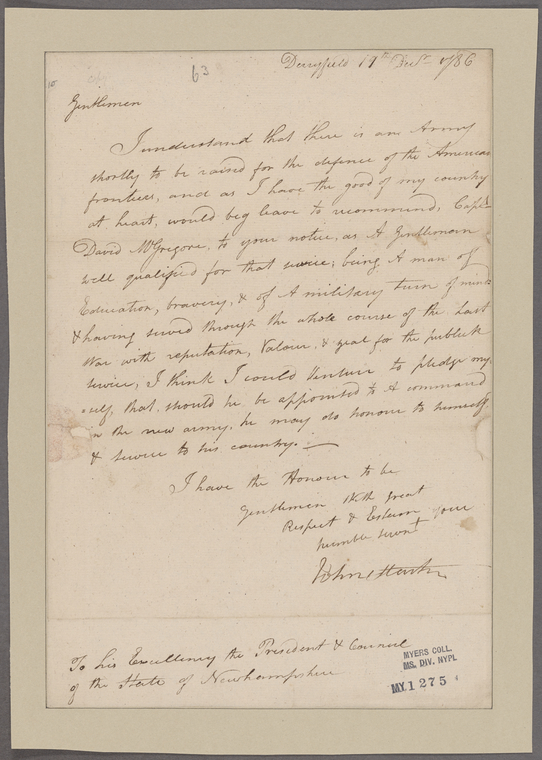 63
Derryfield 17th Decr 1786
Gentlemen
I understand that there is an Army
shortly to be raised for the defence of the American
frontiers, and as I have the good of my country
at heart, would beg leave to recommend, Capt
David McGregore, to your notice, as A Gentleman
well qualified for that service; being A man of
Education, bravery, & of A military turn of mind
& having served through the whole course of the Last
War with reputation, Valour, & zeal for the publick
service, I think I could Venture to pledge my
self, that, should he be appointed to A command
in the new army, he may do honour to himself
& service to his country.
I have the Honour to be
Gentlemen With great
Respect & Esteem your
humble servt
John Stark
To his Excellency the President & Council
of the State of Newhampshire
MYERS COLL.
MS. DIV. NYPL
MY.1275